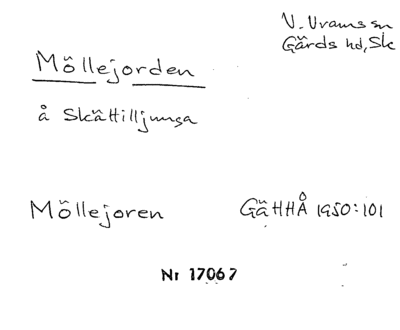 V. Vrams sn
Gärds hd, Sk
Möllejorden
å Skättilljunga
Möllejoren
GäHHÅ 1950:101
Nr 17067